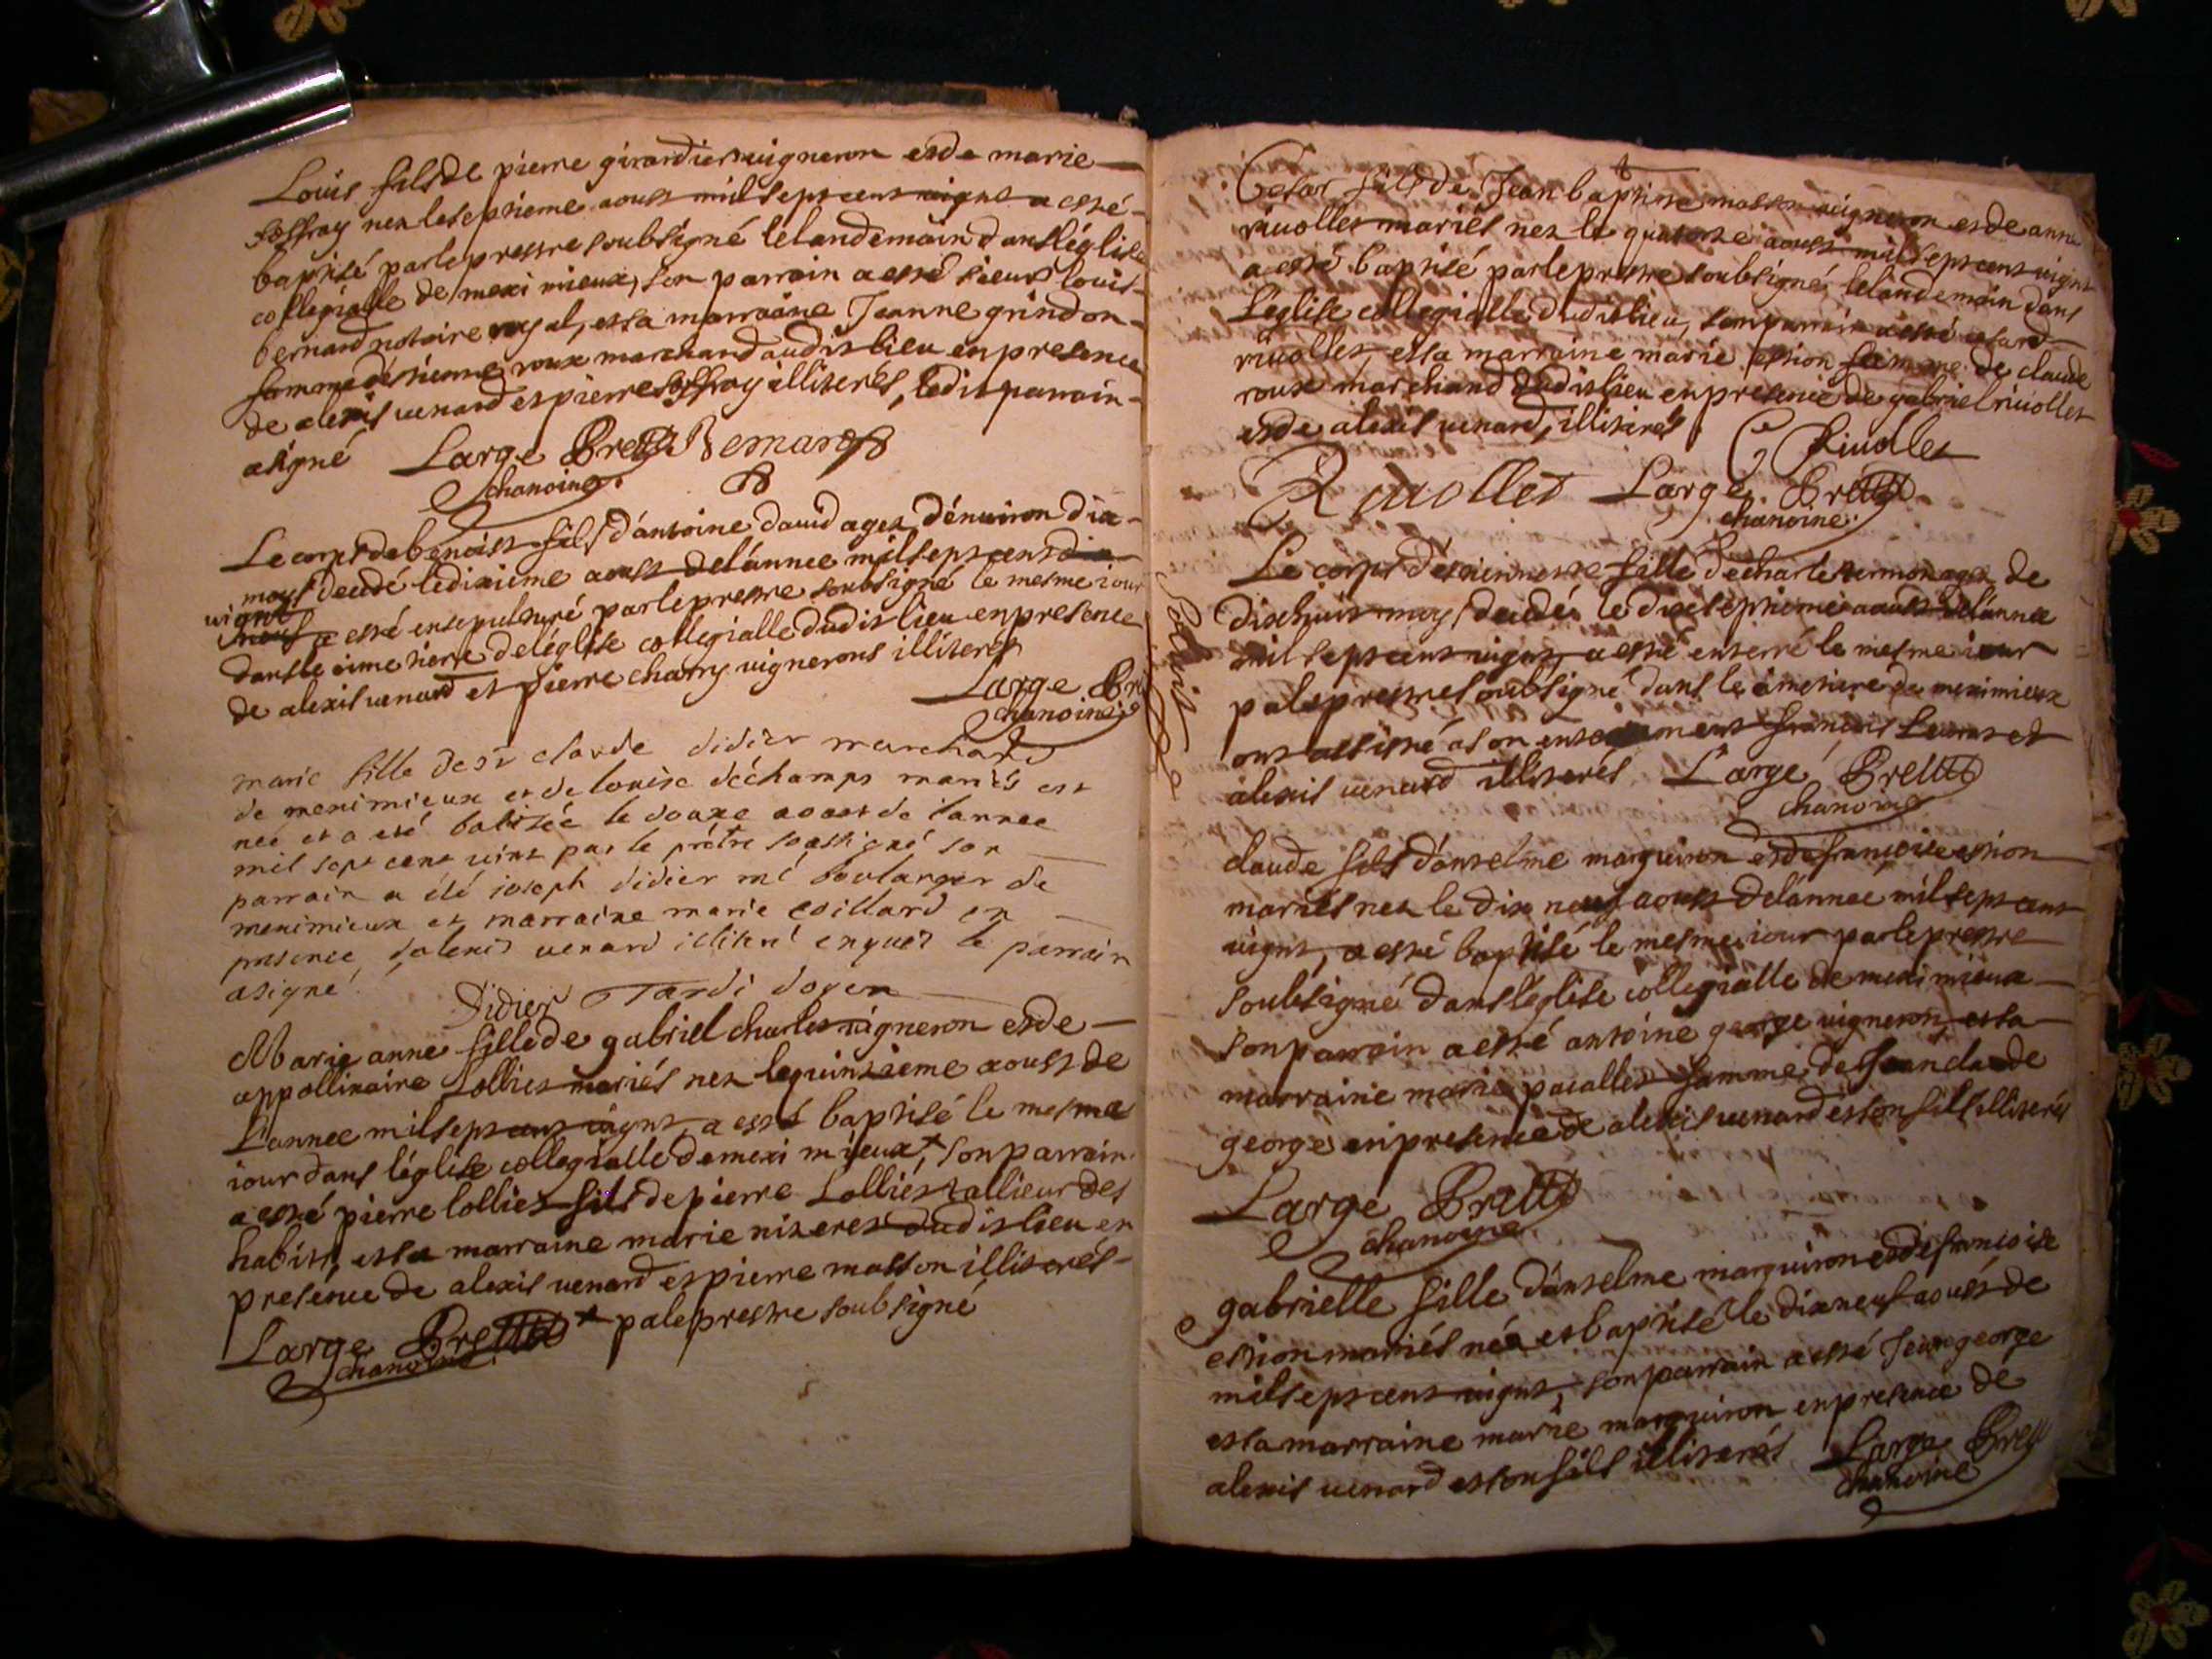 Louis fils de pierre girardier uigneron et de marie
soffray nez le septieme aoust mil sept cent uignt a esté
baptisé par le prestre soubsigné lelandemain dans léglise
collegialle de meximieux, son parrain a esté sieur louis
bernard notaire royal, et sa marraine Jeanne grindon
femme déstienne roux marchand audit lieu en presence
de alexis uenard et pierre soffray illiterés, ledit parrain
asigné Large Bernard
chanoine
Le corps de benoist fils dántoine dauid agez dénuiron dix
moys decedé le dixieme aoust delánnee mil sept cent dix
uignt
neuf a esté ensepulturé par le prestre soubsigné le mesme iour
dans le cimetierre deléglise collegialle dudit lieu en presence
de alexis uenard et pierre charry uignerons illiterés
Large
chanoine
marie fille de sr claude didier marchand
de meximieux et de louise déchamps mariés est
neé et a eté batisée le douxe aoust de lannee
mil sept cent vint par le prétre soussigné son
parrain a été ioseph didier mé boulanger de
meximieux et marraine marie en
presence dalexis uenard illiteré enquis le parrain
asigné
Didier Tardi doyen
Marie anne fille de gabriel charles uigneron et de
appollinaire Lollies mariés nez le quinsieme aoust de
Lannee mil sept cent uignt, a esté baptisé le mesme
iour dans léglise collegialle de meximieux + son parrain
a esté pierre lollies fils de pierre Lolliés tallieur des
habits, et sa marraine marie nizeres dudit lieu en
presence de alexis uenard et pierre masson illiterés
Large + pale prestre soubsigné
chanoine
Cesar fils de Jean baptiste masson uigneron et de anne
riuollet mariés nez le quatorze aoust mil sept cent uignt
a esté baptisé par le prestre soubsigné lelandemain dans
Léglise collegialle dudit lieu, son parrain a esté cesard
riuollet, et sa marraine marie estion femme de claude
roux marchand dudit lieu en presence de gabriel riuollet
et de alexis uenard, illiterés
C Riuollet
Riuollet Large
chanoine
Le corps destiennette fille de charle termon agez de
dixhuit moys decedé le dixseptieme aoust delánnee
mil sept cent uignt, a esté enterré le mesme iour
pale prestre soubsigné dans le cimetiere de meximieux
ont assisté a son enterrement françois et
alexis uenard illiterés Large
chanoine
claude fils dánselme marguiron et de françoise estion
mariés nez le dix neuf aoust delánnee mil sept cent
uignt, a esté baptisé le mesme iour par le prestre
soubsigné dans léglise collegialle de meximieux
son parrain a esté antoine george uigneron, et sa
marraine marie pacallet femme de Jean claude
george en presence de alexis uenard et son fils illiterés
Large
chanoine
gabrielle fille dánselme marguiron et de françoise
estion mariés née et baptisé le dixneuf aoust de
mil sept cent uignt, son parrain a esté Jean george
et sa marraine marie marguiron en presence de
alexis uenard et son fils illiterés Large
chanoine